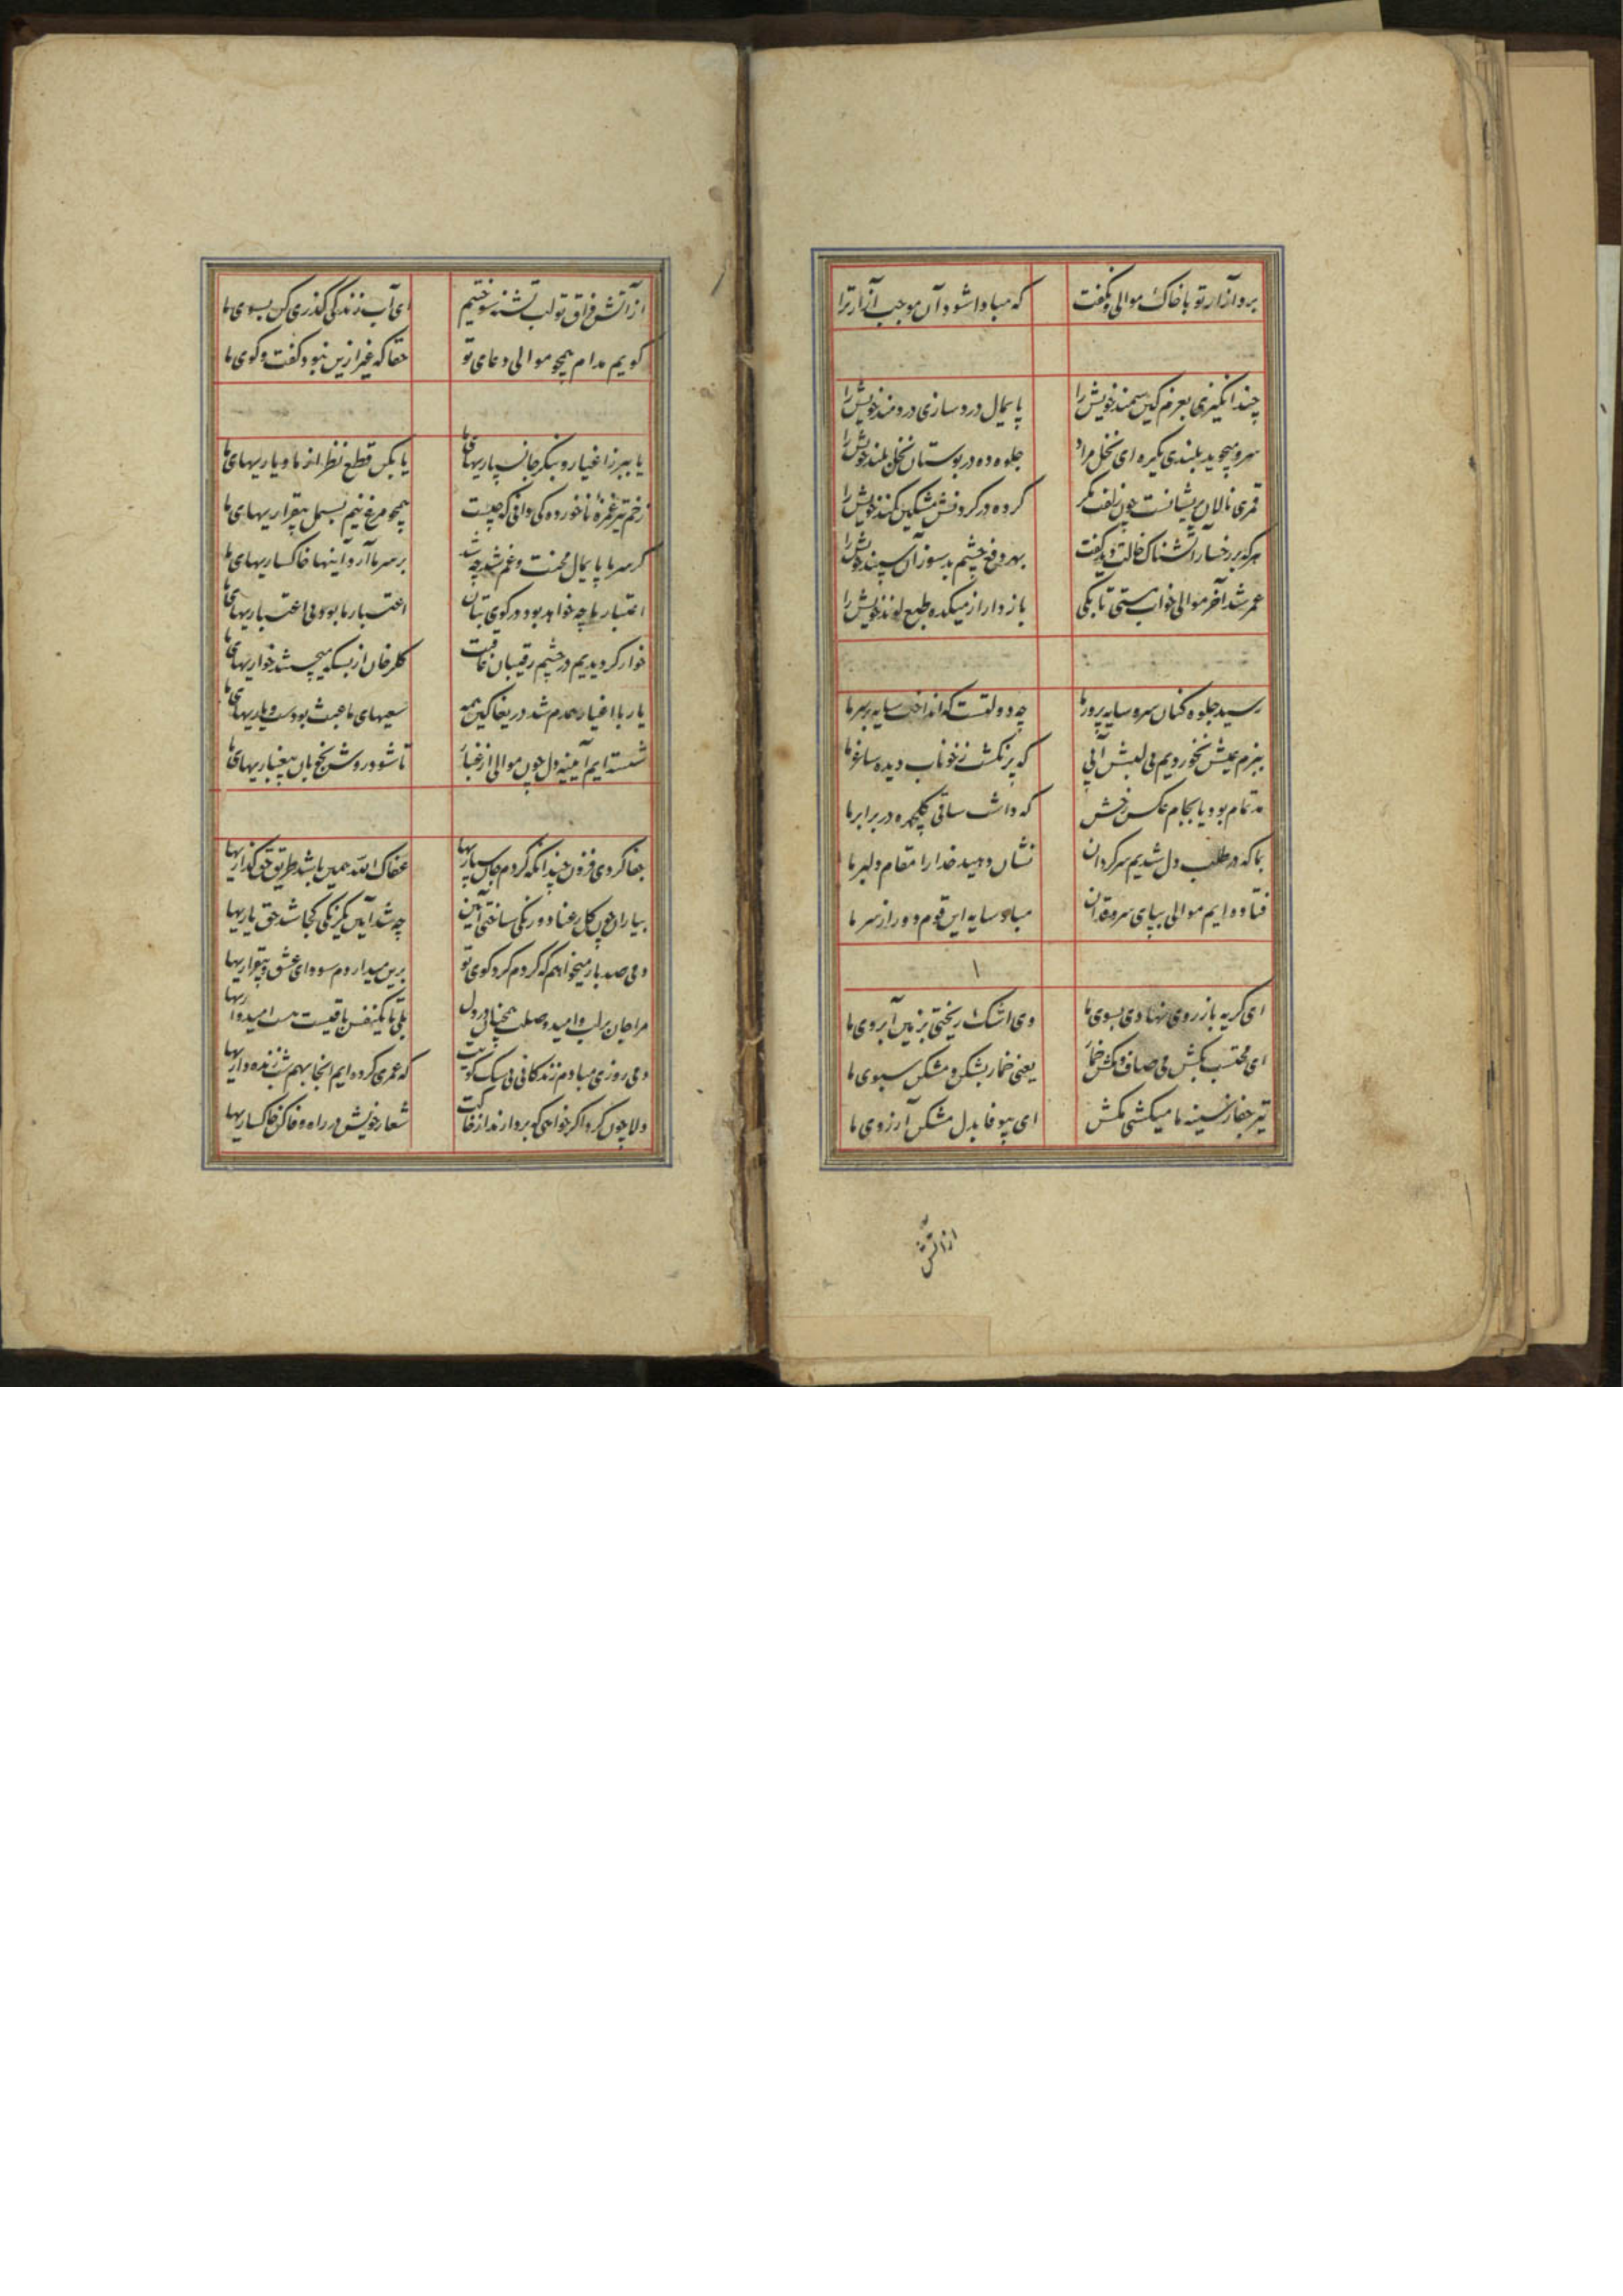 برد آزار تو با خاک موالی و نگفت که مبادا شود آن موجب آزار ترا
چند انگیزی بعزم کین سمند خویش را پایمال درد سازی دردمند خویش را
سرو میجوید بلندی یکره ای نخل مراد جلوه ده در بوستان نخل بلند خویش را
قمری نالان پریشانست چون زلفت مگر کرده در گردنش مشکین کمند خویش را
هر که بر رخسار آتشناک خالت دید گفت بهر دفع چشم بد سوزان سپند خویش را
عمر شد آخر موالی خواب مستی تا بکی باز دار از میکده طبع لوند خویش را
رسید جلوه کنان سرو سایه پرور ما چه دولتست که انداخت سایه بر سر ما
ببزم عیش نخوردیم بی لبش آبی که پر نگشت ز خوناب دیده ساغر ما
مه تمام بود یا بجام عکس رخش که داشت ساقی گلچهره در برابر ما
بما که در طلب دل شدیم سرگردان نشان دهید خدا را مقام دلبر ما
فتاده ایم موالی بپای سروقدان مباد سایه این قوم دور از سر ما
ای گریه باز روی نهادی بسوی ما وی اشک ریختی بزمین آبروی ما
ای محتسب بکش می صاف و مکش خمار یعنی خمار بشکن و مشکن سبوی ما
تیر جفا ز سینه ما میکشی مکش ای بیوفا بدل مشکن آرزوی ما
از آتش
از آتش فراق تو لب تشنه سوختیم ای آب زندگی گذری کن بسوی ما
گویم مدام همچو موالی دعای تو حقا که غیر ازین نبود گفت و گوی ما
یا ببر ز اغیار و بنگر جانسپاریهای ما یا بکن قطع نظر از ما و یاریهای ما
زخم تیر غمزه ناخورده کی دانی که چیست همچو مرغ نیم بسمل بیقراریهای ما
گر سر ما پایمال محنت و غم شد چه شد بر سر ما آرد اینها خاکساریهای ما
اعتبار ما چه خواهد بود در کوی بتان اعتبار ما بود بی اعتباریهای ما
خوار گردیدیم در چشم رقیبان عاقبت گلرخان از بسکه میجستند خواریهای ما
یار با اغیار همدم شد دریغا کین همه سعیهای ما عبث بودست و یاریهای ما
شسته ایم آیینه دل چون موالی از غبار تا شود روشن بخوبان بیغباریهای ما
جفا کردی فزون چندانکه کردم جان سپاریها عفاک الله همین باشد طریق حق گذاریها
بیاران چون گل رعنا دورنگی ساختی آیین چه شد آیین یکرنگی کجا شد حق یاریها
دمی صد بار میخواهم که گردم گرد کوی تو برین میدارد سودای عشق و بیقراریها
مرا جان بر لب و امید وصلت همچنان در دل بلی تا یکنفس باقیست هست امیدواریها
دمی روزی مبادم زندگانی بی سگ کویت که عمری کرده ایم آنجا بهم شب زنده داریها
دلا چون گرد اگر خواهی که بردارند از خاکت شعار خویش در راه وفا کن خاکساریها